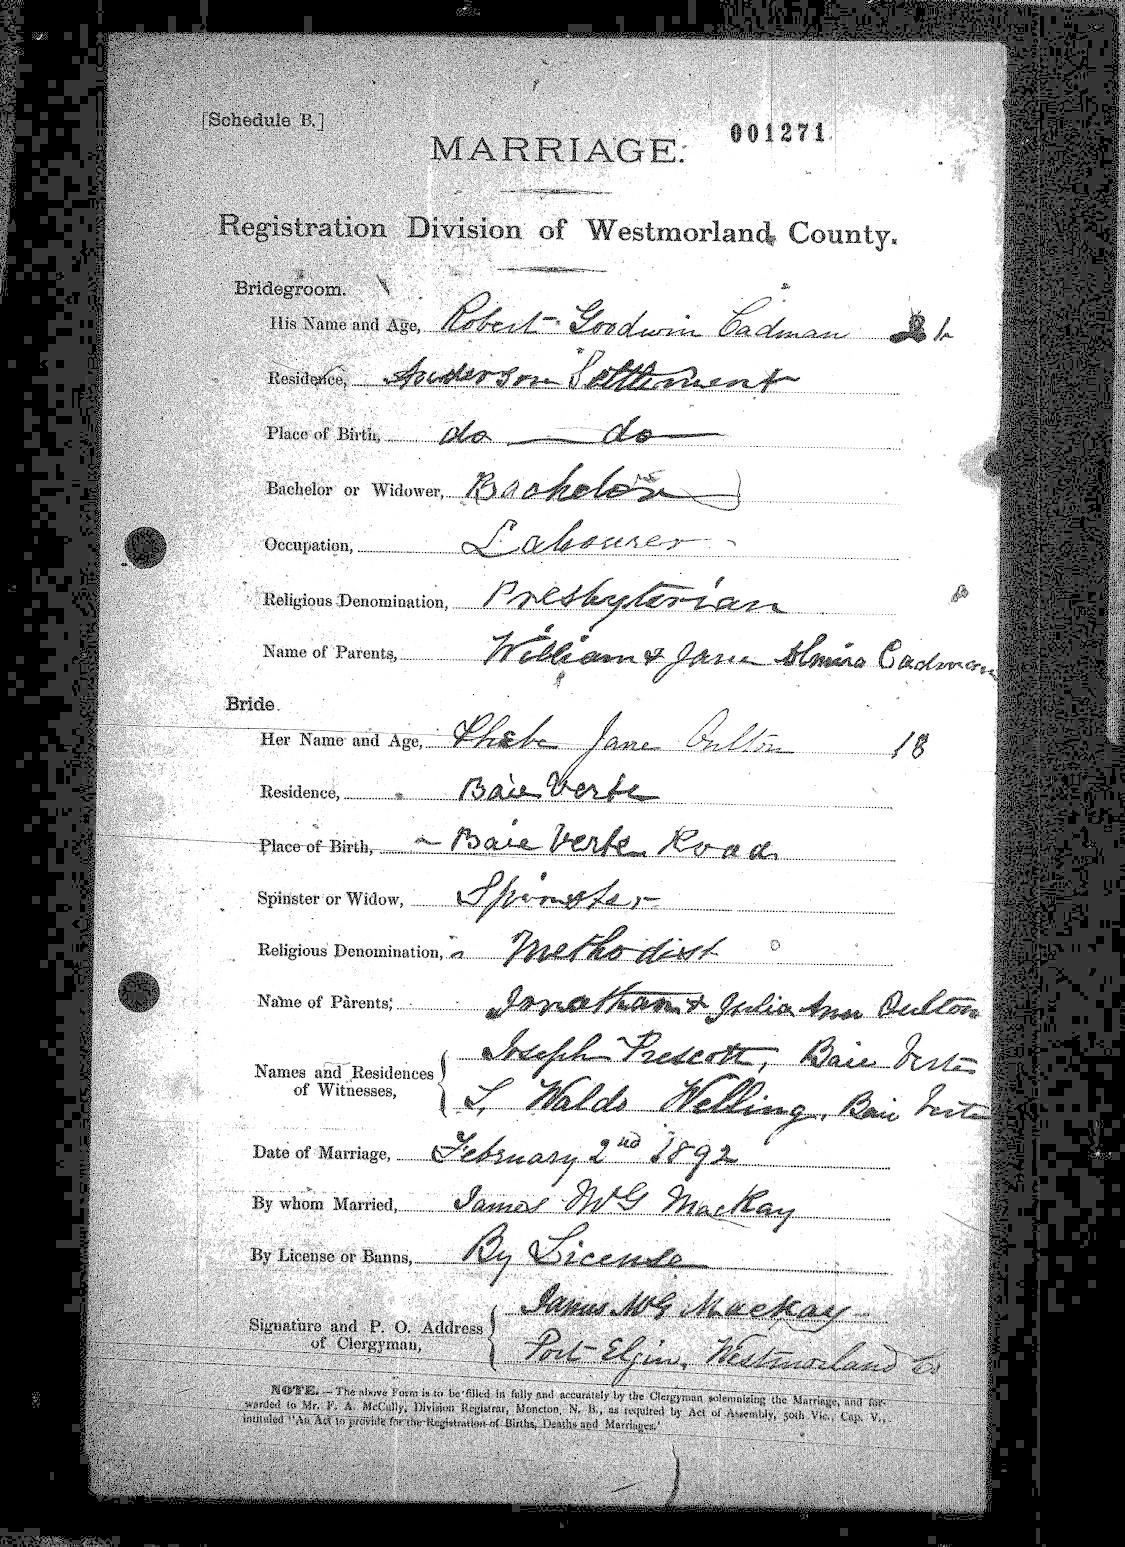 [Schedule B.]
001271
MARRIAGE:
Registration Division of Westmorland County.
Bridegroom.
His Name and Age, Robert Goodwin Cadman
Residence, Anderson Settlement
Place of Birth, do do
Bachelor or Widower, Bachelor
Occupation, Labourer
Religious Denomination, Presbyterian
Name of Parents, William & Jane Almira Cadman
Bride.
Her Name and Age, Phebe Jane Oulton 18
Residence, Baie Verte
Place of Birth, Baie Verte Road
Spinster or Widow, Spinster
Religious Denomination, Methodist
Name of Parents, Jonathan & Julia Ann Oulton
Names and Residences of Witnesses, Joseph Prescott, Baie Verte
Waldo Welling, Baie Verte
Date of Marriage, February 2nd 1892
By whom Married, James McG MacKay
By License or Banns, By License
Signature and P. O. Address of Clergyman, James McG MacKay
Port Elgin, Westmorland Co
NOTE.—The above Form is to be filled in fully and accurately by the Clergyman solemnizing the Marriage, and for-
warded to Mr. F. A. McCully, Division Registrar, Moncton, N. B., as required by Act of Assembly, 50th Vic., Cap. V.,
intituled "An Act to provide for the Registration of Births, Deaths and Marriages."